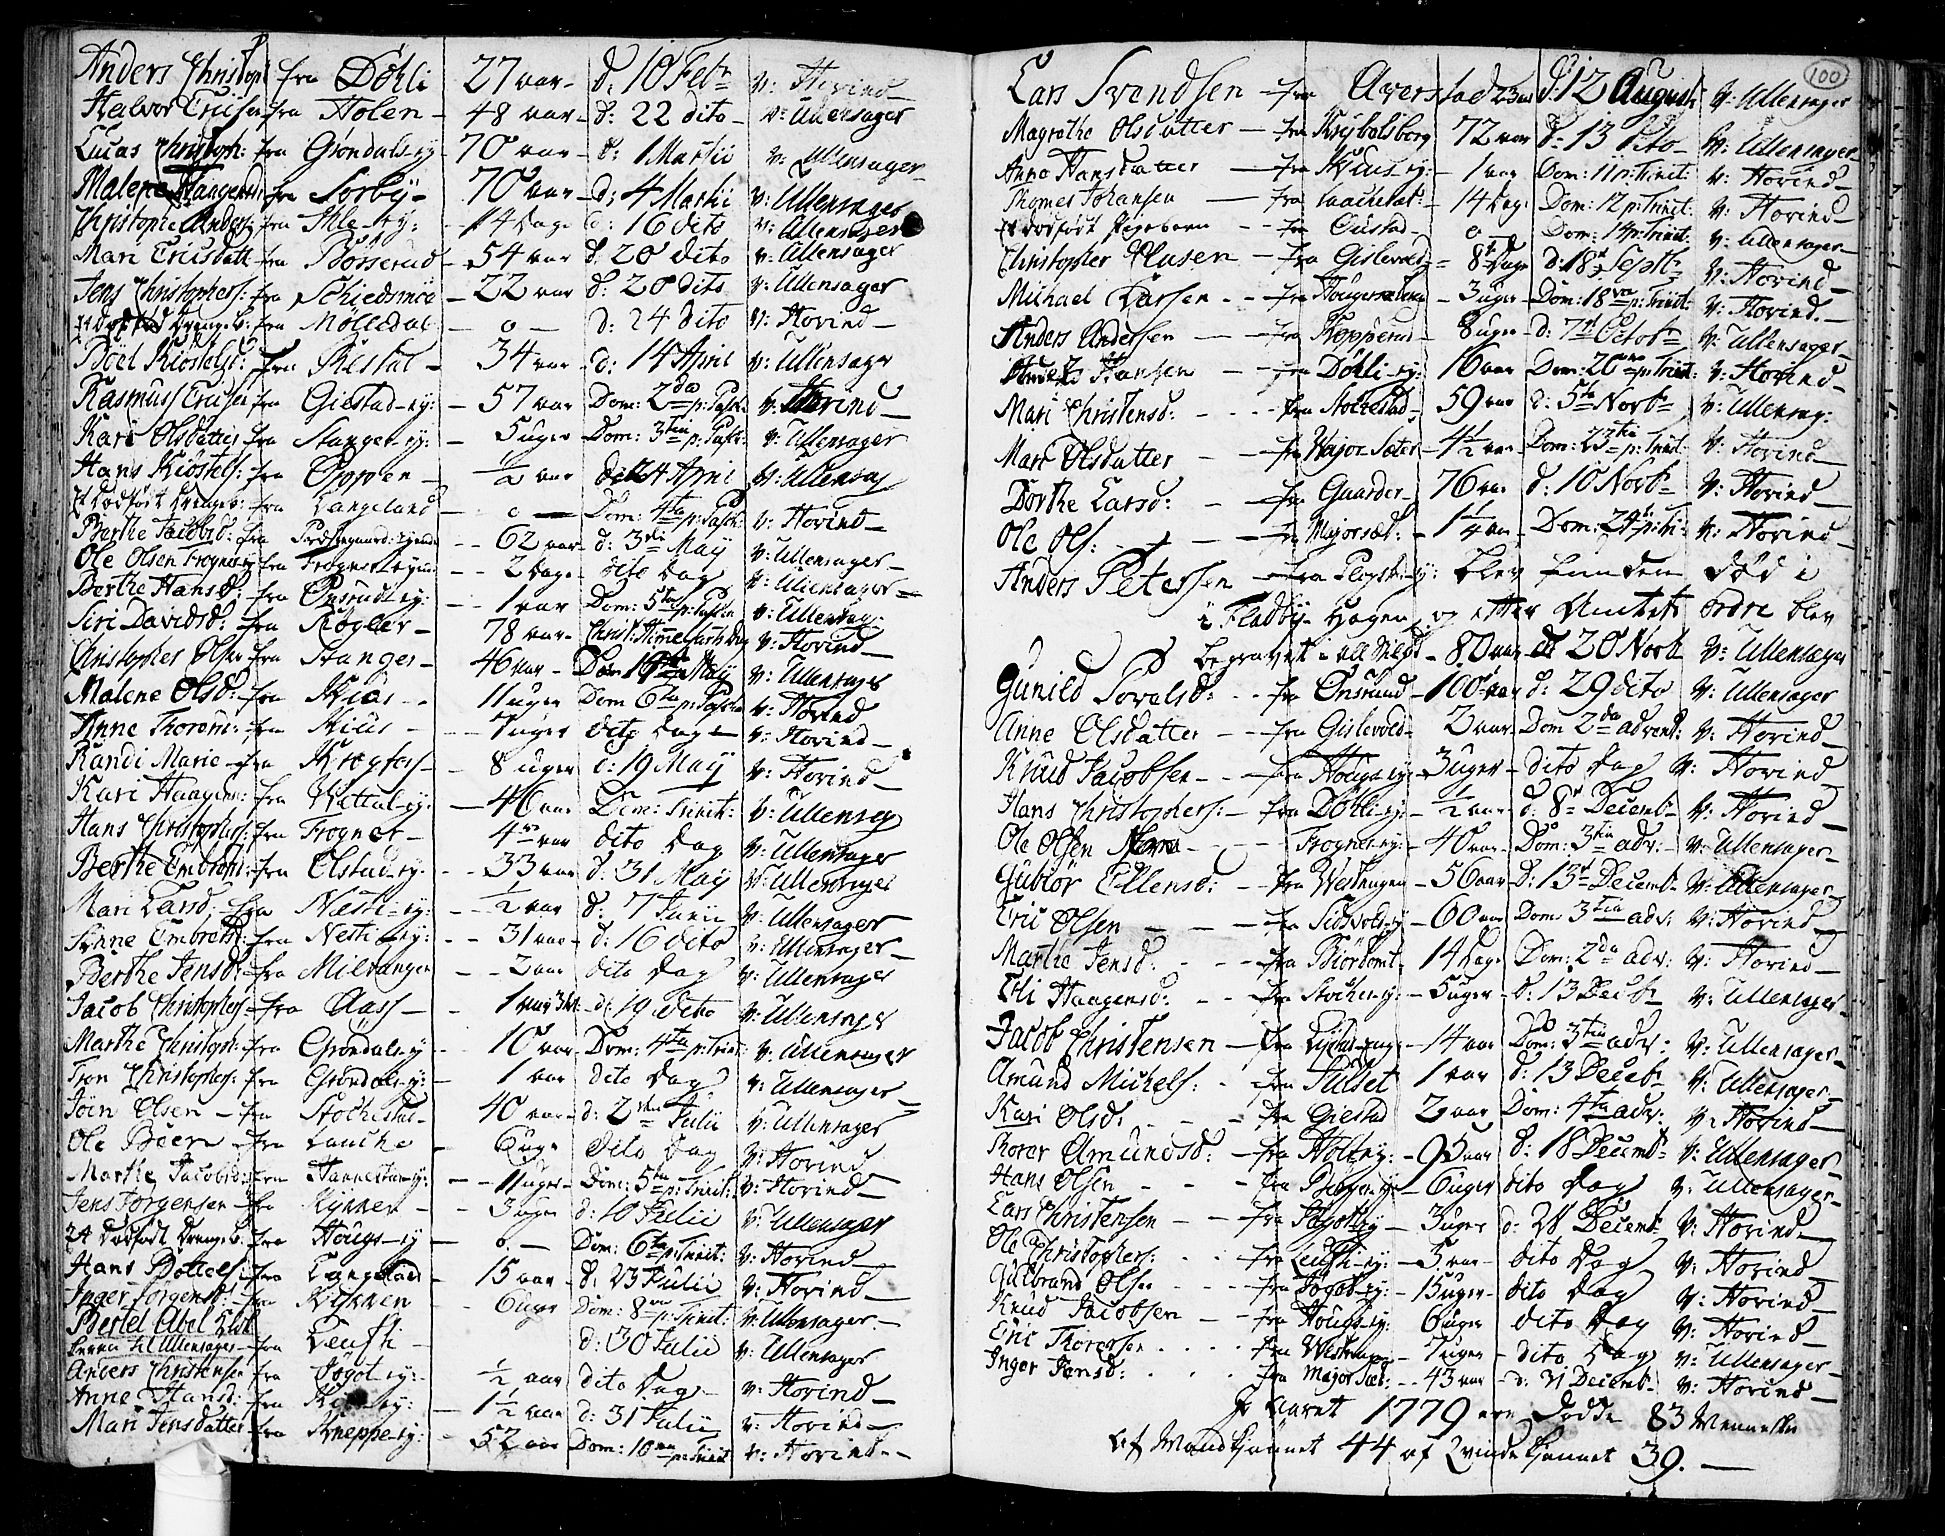 Anders Christoph: fra Döhli 27 aar d: 10 Feb: v: Hovind
Halvor Ericsen fra Holen 48 aar d: 22 dito v: Ullensager
Lucas Christoph: fra Gröndals-ej: 70 aar d: 1 Martii v: Ullensager
Malene Haagensd: fra Sörby 70 aar d: 4 Martii v: Ullensager
Christopher Anders: fra Ihle-ej: 14 Dage d: 16 dito v: Ullensager
Mari Ericsdatt: fra Bösserud 54 aar d: 20 dito v: Ullensager
Jens Christophers: fra Schiedsmöe 22 aar d: 20 dito v: Ullensager
Et dödfödt Drengeb: fra Mölledal o d: 24 dito v: Hovind
Böel Kiöstelsd: fra Ristal 34 aar d: 14 April v: Ullensager
Rasmus Ericsen fra Giestad-ej: 57 aar Dom: 2da p: Pasch: v: Hovind
Kari Olsdatter fra Stanger-ej: 5 uger Dom: 3tia p: Pasch: v: Ullensager
Hans Kiöstels: fra Oppen ½ aar d: 24 April v: Ullensag
Et dödfödt Drengeb: fra Langeland o Dom: 4ta p: Pasch: v: Hovind
Berthe Jacobsd: fra Præstegaard: Ejende 62 aar d: 3die May v: Ullensager
Ole Olsen Frogner-ej fra Frogner-ejend 2 Dage dito Dag v: Ullensager
Berthe Hansd: fra Önsrud-ej: 1 aar Dom: 5ta p: Pasch: v: Ullensag:
Siri Davidsd: fra Rögler 78 aar Christi Himmelfarts Dag v: Hovind
Christopher Olsen fra Stanger 46 aar May v: Ullensager
Malene Olsd: fra Kius 11 uger Dom 6ta p: Pascha v: Hovind
Anne Thorersd: fra Kius 7 uger dito Dag v: Hovind
Randi Marie fra Krogfos 8 uger d: 19 May v: Hovind
Kari Haagens: fra Hattal-ej: 40 aar Dom: Trinit: v: Ullensag
Hans Christophers: fra Frogner 4 aar dito Dag v: Ullensager
Berthe Embrechtsd: fra Olstad-ej: 33 aar d: 31 May v: Ullensager
Mari Larsd: fra Næsti-ej: ½ aar d: 7 Junii v: Ullensager
Anne Embretsd: fra Nesti-ej: 31 aar d: 16 dito v: Ullensager
Berthe Jensd: fra Milvangen 2 aar dito Dag v: Ullensager
Jacob Christophers: fra Aas 1 aar d: 19 dito v: Ullensager
Marthe Christoph: fra Gröndals-ej 10 aar Dom: 4ta p: Trinit: v: Ullensager
Tron Christophers: fra Gröndals-ej: 1 aar dito Dag v: Ullensager
Jöen Olsen fra Stochestad 40 aar d: 2den Julii v: Ullensager
Ole Been fra Lauche 6 uger dito Dag v: Hovind
Marthe Jacobsd: fra Hannestad-ej: 11 uger Dom: 5ta p: Trinit: v: Hovind
Jens Jörgensen fra Kykken 3 uger d: 10 Julii v: Ullensager
Et dödfödt Drengeb: fra Hougs-ej o Dom: 6ta p: Trinit: v: Hovind
Hans Bottels: fra Langeland 15 aar d: 23 Julii v: Hovind
Inger Jörgensd: fra Kykken 6 uger Dom: 8va p: Trinit: v: Ullensager
Bertel Abel
til Ullensager fra Leusti d: 30 Julii v: Ullensager
Anders Christensen fra Fogot-ej: ½ aar dito Dag v: Hovind
Anne Hansd: fra 1½ aar d: 31 Julii v: Hovind
Mari Jensdatter fra Kneppe-ej: 52 aar Dom: 10ma p: Trinit v: Hovind
100
Lars Svendsen fra Averstad 23 aar d: 12 August v: Ullensager
Magrethe Olsdatter fra Krybolsberg 72 aar d: 13 dito v: Ullensager
Anne Hansdatter fra Kius-ej: 1 aar Dom: 11 p: Trinit: v: Hovind
Thomes Johansen fra Laachestad: 14 Dag: Dom: 12 p: Trinit: v: Hovind
Et dödfödt Pigebarn fra Austad o Dom: 14 p: Trinit: v: Ullensager
Christopher Clusen fra Gislevold 8te Dage d: 18 Septb: v: Hovind
Michael Larsen fra Hougersætern 3 uger Dom: 18va p: Trinit: v: Hovind
Anders Andersen fra Kopperud 8 uger d: 7de Octob: v: Ullensager
Hansen fra Döhli-ej: 16 aar Dom: 20ma p: Trinit: v: Hovind
Mari Christensd: fra Stochestad 59 aar d: 5te Novb: v: Ullensag:
Mari Olsdatter fra Major Sæter 4½ aar Dom: 23tia p: Trinit: v: Hovind
Dorthe Larsd: fra Gaarder 76 aar d: 10 Novb: v: Hovind
Ole Ols: fra Majorsæt: 1¼ aar Dom: 24 p: Tri: v: Hovind
Anders Petersen fra Ployst-ej: blev funden död i
i Fladby Hagen og efter Amtets ordre blev
begravet i all Stilhed 80 aar d 20 Novb v: Ullensager
Gunild Povelsd: fra Önsrud 100 aar d: 29 dito v: Ullensager
Anne Olsdatter fra Gislevold 2 aar Dom 2da advent: v: Hovind
Knud Jacobsen fra Hougs-ej: 3 uger dito Dag v: Hovind
Hans Christophers: fra Döhli-ej: ½ aar d: 8de Decemb: v: Hovind
Ole Olsen Frogner-ej: 40 aar Dom: 3tia adv: v: Ullensager
Gubiör Ellensd: fra Westengen 56 aar d: 13de Decemb: v: Ullensager
Eric Olsen fra Eidsvols-ej 60 aar Dom: 3tia adv: v: Hovind
Marthe Jensd: fra Biörtomt 14 Dage Dom: 2da adv: v: Hovind
Eli Haagensd: fra Stocher-ej: 5 uger d: 13 Decb: v: Ullensager
Jacob Christensen fra 14 aar Dom: 3tia adv: v: Ullensager
Amund Michels: fra Julset 1 aar d: 13 Decb: v: Ullensager
Kari Olsd: fra Giestad 2 aar Dom: 4ta adv: v: Hovind
Korer Amundsd: fra Holt-ej: 95 aar d: 18 Decemb: v: Ullensager
Hans Olsen fra 6 uger dito Dag v: Ullensager
Lars Christensen fra Fogot-ej 3 uger d: 28 Decemb: v: Hovind
Ole Christophers: fra Leusti-ej: 5 aar dito Dag v: Hovind
Gulbrand Olsen fra Fogot-ej: 15 uger dito Dag v: Hovind
Knud Jacobsen fra Hougs-ej: 6 uger dito Dag v: Hovind
Eric Thorersen fra Westengen 7 uger dito Dag v: Ullensager
Inger Jensd: fra Major Sæt: 43 aar d: 31 Decemb: v: Hovind
I Aaret 1779 ere Dödde 83 Mennesker
af Mandkiönnet 44 af Qvindekiönnet 39.